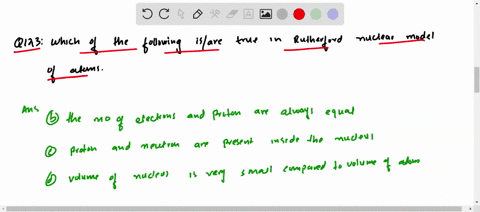 Q123: which of the following is/are true in Rutherford nuclear model
of atoms.
Ans
(b) the no of electrons and proton are always equal
(c) proton and neutron are present inside the nucleus
(d) volume of nucleus is very small compared to volume of atom